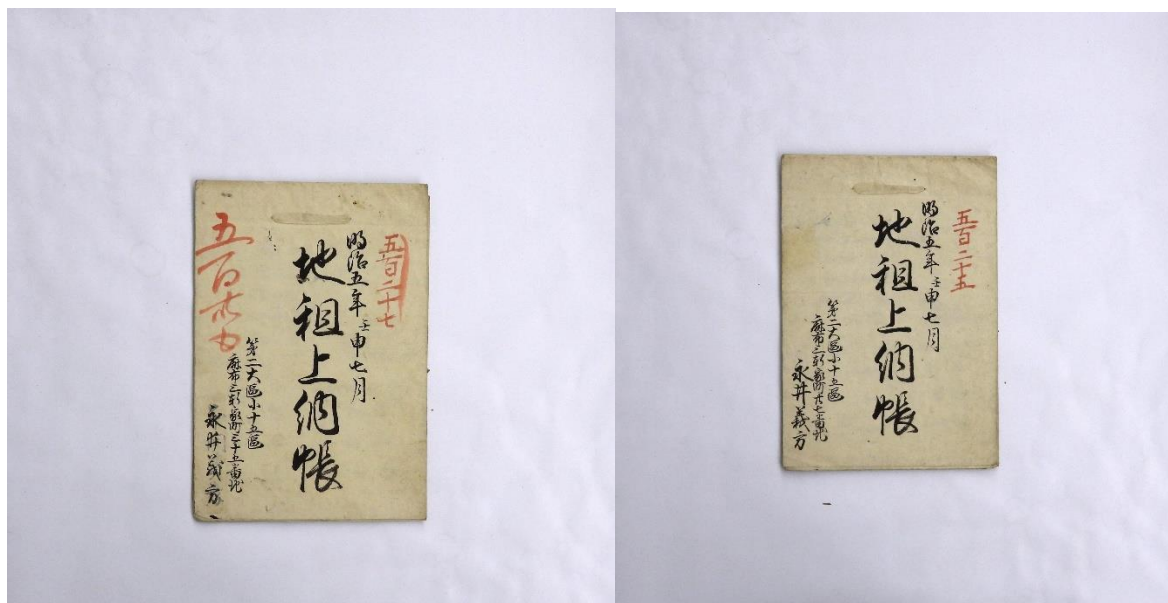 五百二十七
明治五年壬申七月
地租上納帳
第二大區小十五區
麻布三軒家町三十五番地
永井義方
五百二十五
明治五年壬申七月
地租上納帳
第二大區小十五區
麻布三軒家町廿七番地
永井義方